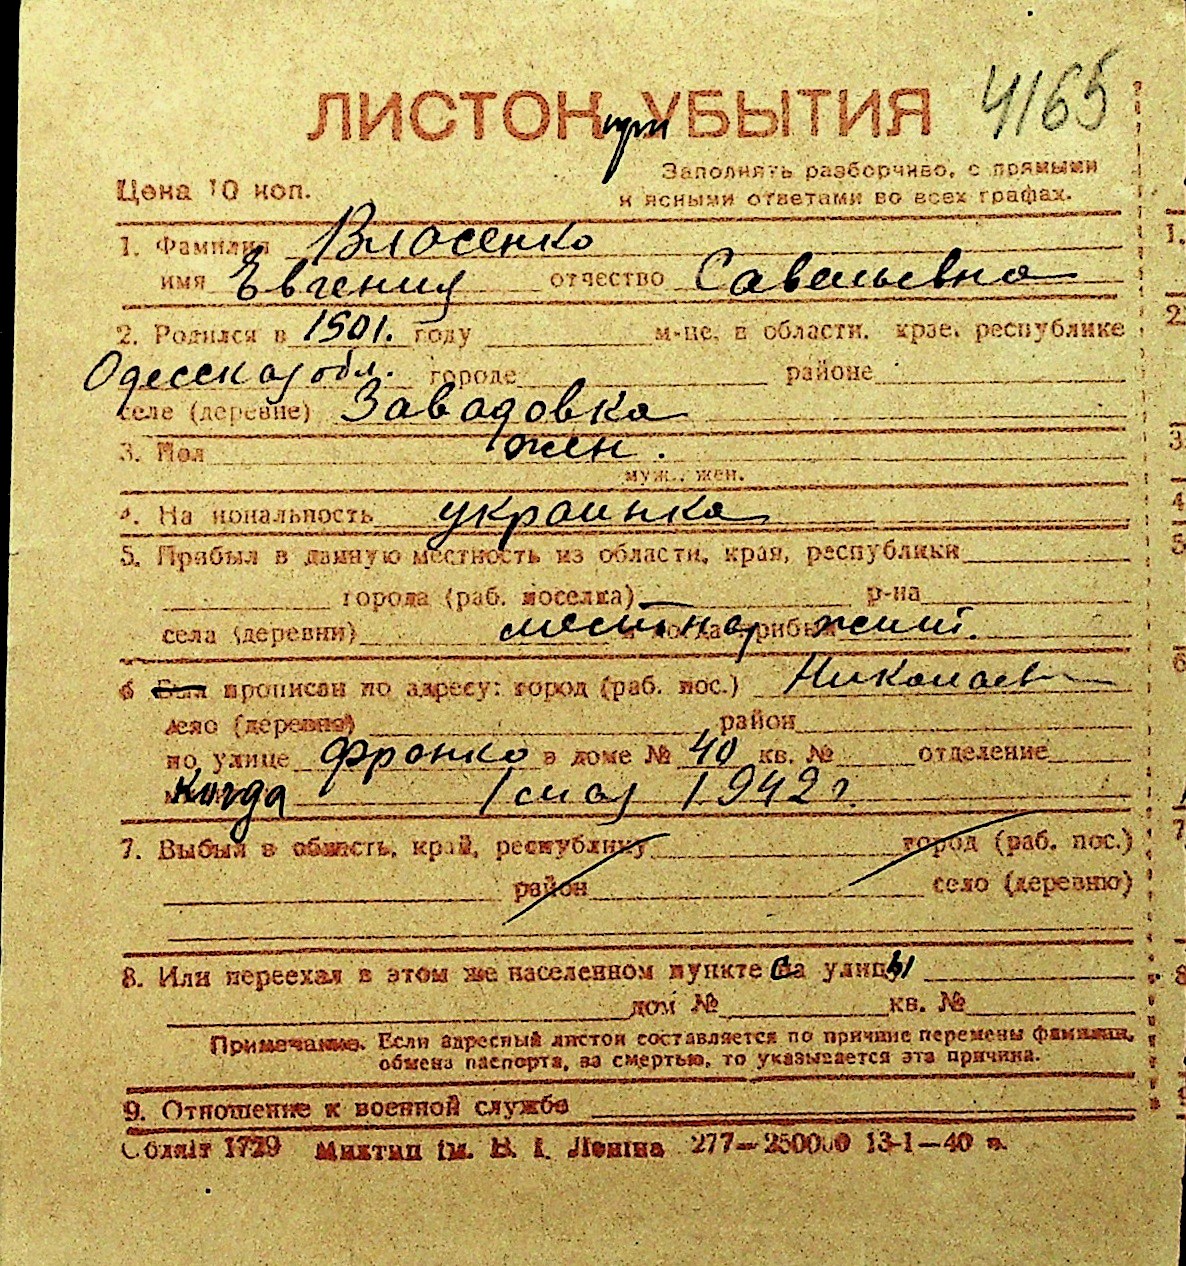 4165
ЛИСТОК при УБЫТИЯ
Цена 10 коп.
Заполнять разборчиво, с прямыми
и ясными ответами во всех графах.
1. Фамилия Власенко
имя Евгения отчество Савельевна
2. Родился в 1901. году м-це, в области, крае, республике
Одесская обл. городе районе
селе (деревне) Завадовка
3. Пол жен.
муж., жен.
4. На иональность украинка
5. Прибыл в данную местность из области, края, республики
города (раб. поселка) р-на
села (деревни) и когда прибыл местная жит.
6 Был прописан по адресу: город (раб. пос.) Николаев
село (деревня) район
по улице Франко в доме № 40 кв. № отделение
Когда 1 мая 1942 г.
7. Выбыл в область, край, республику город (раб. пос.)
район село (деревню)
8. Или переехал в этом же населенном пункте с улицы
дом № кв. №
Примечание. Если адресный листок составляется по причине перемены фамилии,
обмена паспорта, за смертью, то указывается эта причина.
9. Отношение к военной службе
Обліт 1729 Миктип ім. В. І. Леніна 277—250000 13-1—40 п.
1.
2.
3.
4
5
6
7
8
9